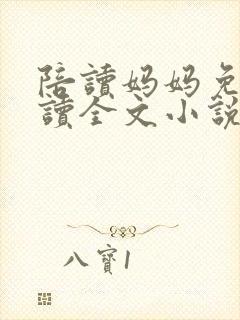 陪讀媽媽免
讀全文小說
八寶1